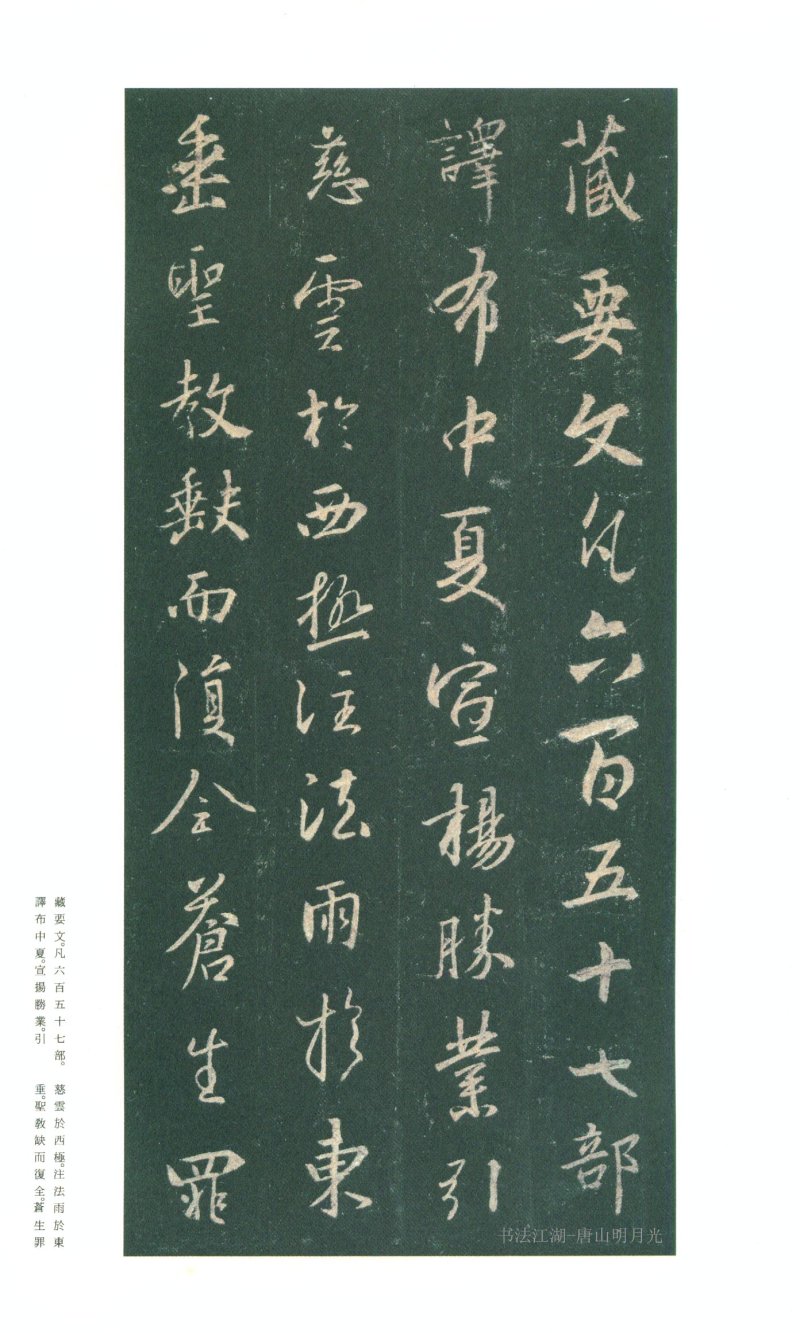 藏要文凡六百五十七部
譯布中夏宣揚勝業引
慈雲於西極注法雨於東
垂聖教缺而復全蒼生罪
藏要文。凡六百五十七部。
譯布中夏。宣揚勝業。引
慈雲於西極。注法雨於東
垂。聖教缺而復全。蒼生罪
书法江湖-唐山明月光